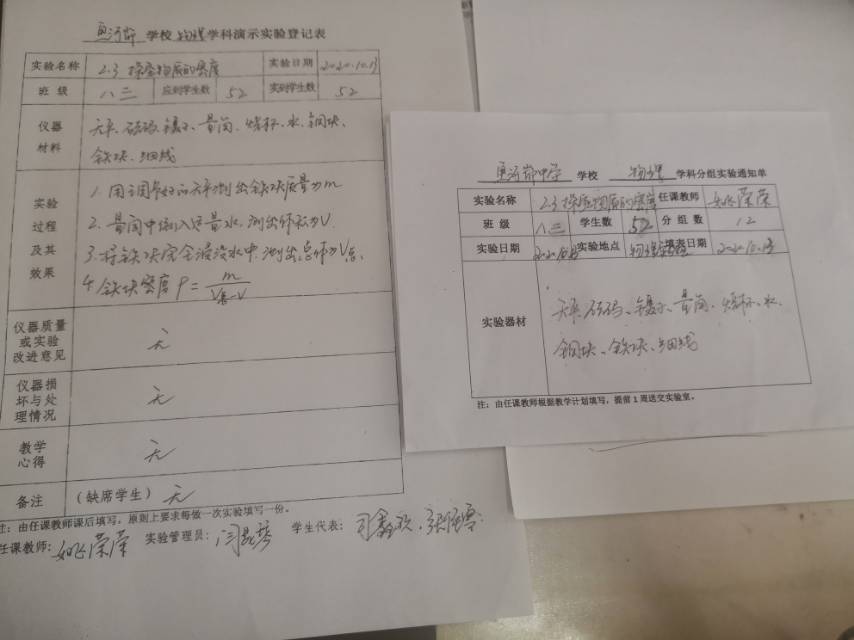 学校 物理 学科演示实验登记表
实验名称 2.3 探究物质的密度 实验日期 2020.10.13
班 级 八三 应到学生数 52 实到学生数 52
仪器 材料 天平、砝码、镊子、量筒、烧杯、水、铜块、
铁块、细线
实验 过程 及其 效果
1. 用调节好的天平测出铁块质量为m
2. 量筒中倒入适量水,测出体积为V.
3. 将铁块完全浸没水中,测出总体积为V总.
4. 铁块密度 ρ= m/(V总-V)
仪器质量 或实验 改进意见 无
仪器损 坏与处 理情况 无
教学 心得 无
备注 (缺席学生) 无
注:由任课教师课后填写,原则上要求每做一次实验填写一份。
任课教师: 姚荣荣 实验管理员: 学生代表:
中学 学校 物理 学科分组实验通知单
实验名称 2.3 探究物质的密度 任课教师 姚荣荣
班 级 八三 学生数 52 分 组 数 12
实验日期 实验地点 物理 填表日期 2020.10.13
实验器材 天平、砝码、镊子、量筒、烧杯、水、
铜块、铁块、细线
注:由任课教师根据教学计划填写,提前1周送交实验室。